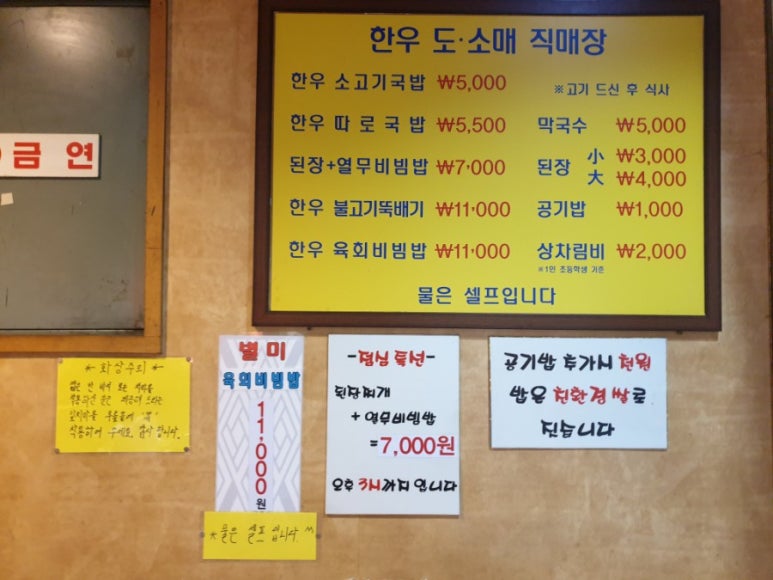 금연
한우 도·소매 직매장
한우 소고기국밥 ₩5,000
※고기 드신 후 식사
한우 따로국밥 ₩5,500
막국수 ₩5,000
된장+열무비빔밥 ₩7,000
된장 小 ₩3,000
大 ₩4,000
한우 불고기뚝배기 ₩11,000
공기밥 ₩1,000
한우 육회비빔밥 ₩11,000
상차림비 ₩2,000
※1인 초등학생 기준
물은 셀프입니다
*화상주의*
별미
육회비빔밥
11,000원
*물은 셀프 입니다. ^^
-점심특선-
된장찌개
+ 열무비빔밥
=7,000원
오후 까지 입니다
공기밥 추가시 천원
밥은 친환경쌀로
짓습니다